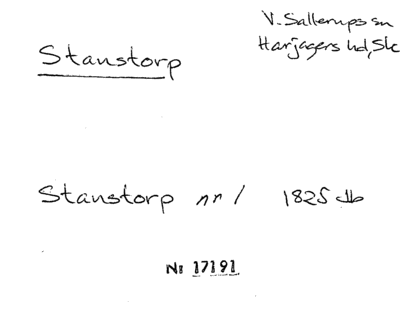 V. Sallerups sn
Harjagers hd, Sk
Stanstorp
Stanstorp nr 1 1825 db
Nr 17191